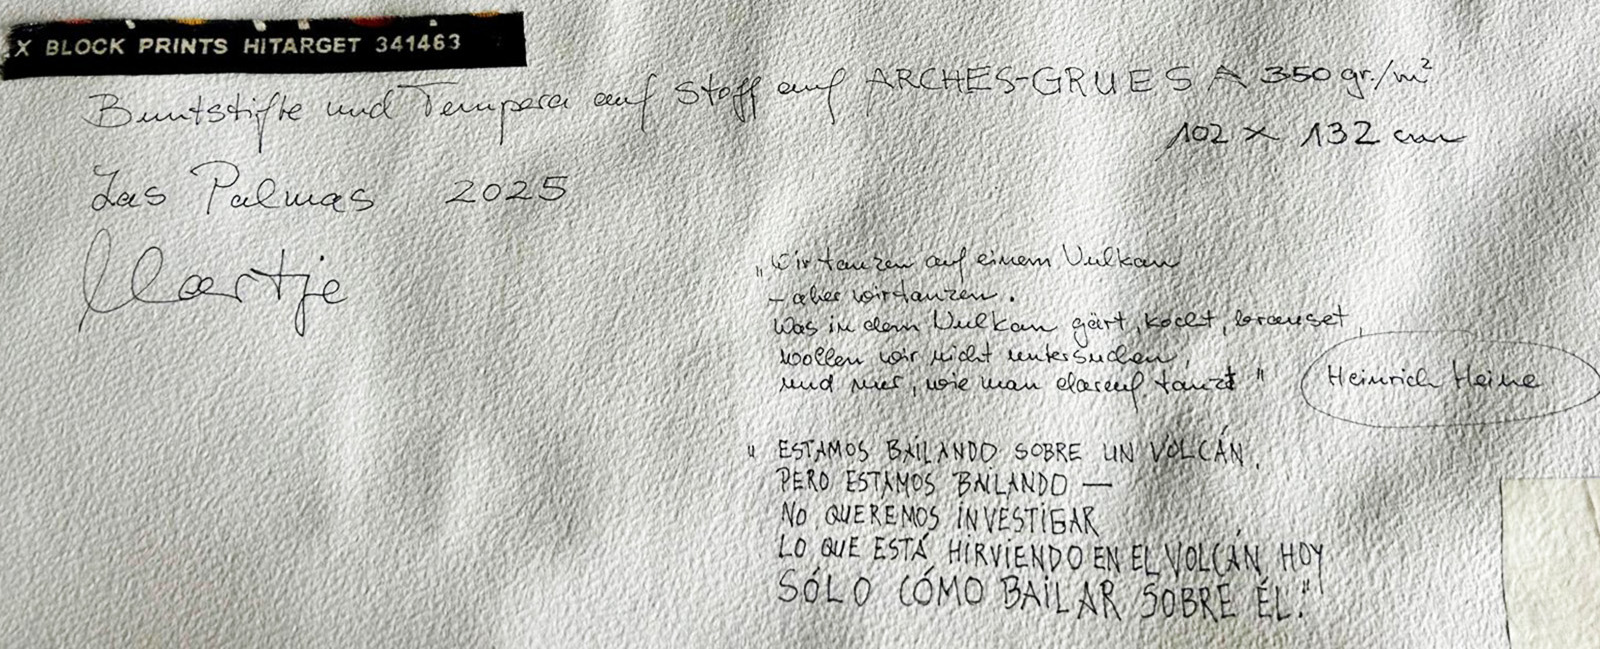 X BLOCK PRINTS HITARGET 341463
Buntstifte und Tempera auf Stoff auf ARCHES-GRUES A 350 gr./m²
102 x 132 cm
Las Palmas 2025
Maartje
„Wir tanzen auf einem Vulkan
– aber wir tanzen.
Was in dem Vulkan gärt, kocht, brauset,
wollen wir nicht untersuchen,
und nur, wie man darauf tanzt"
Heinrich Heine
" ESTAMOS BAILANDO SOBRE UN VOLCÁN.
PERO ESTAMOS BAILANDO —
NO QUEREMOS INVESTIGAR
LO QUE ESTÁ HIRVIENDO EN EL VOLCÁN HOY
SÓLO CÓMO BAILAR SOBRE ÉL."